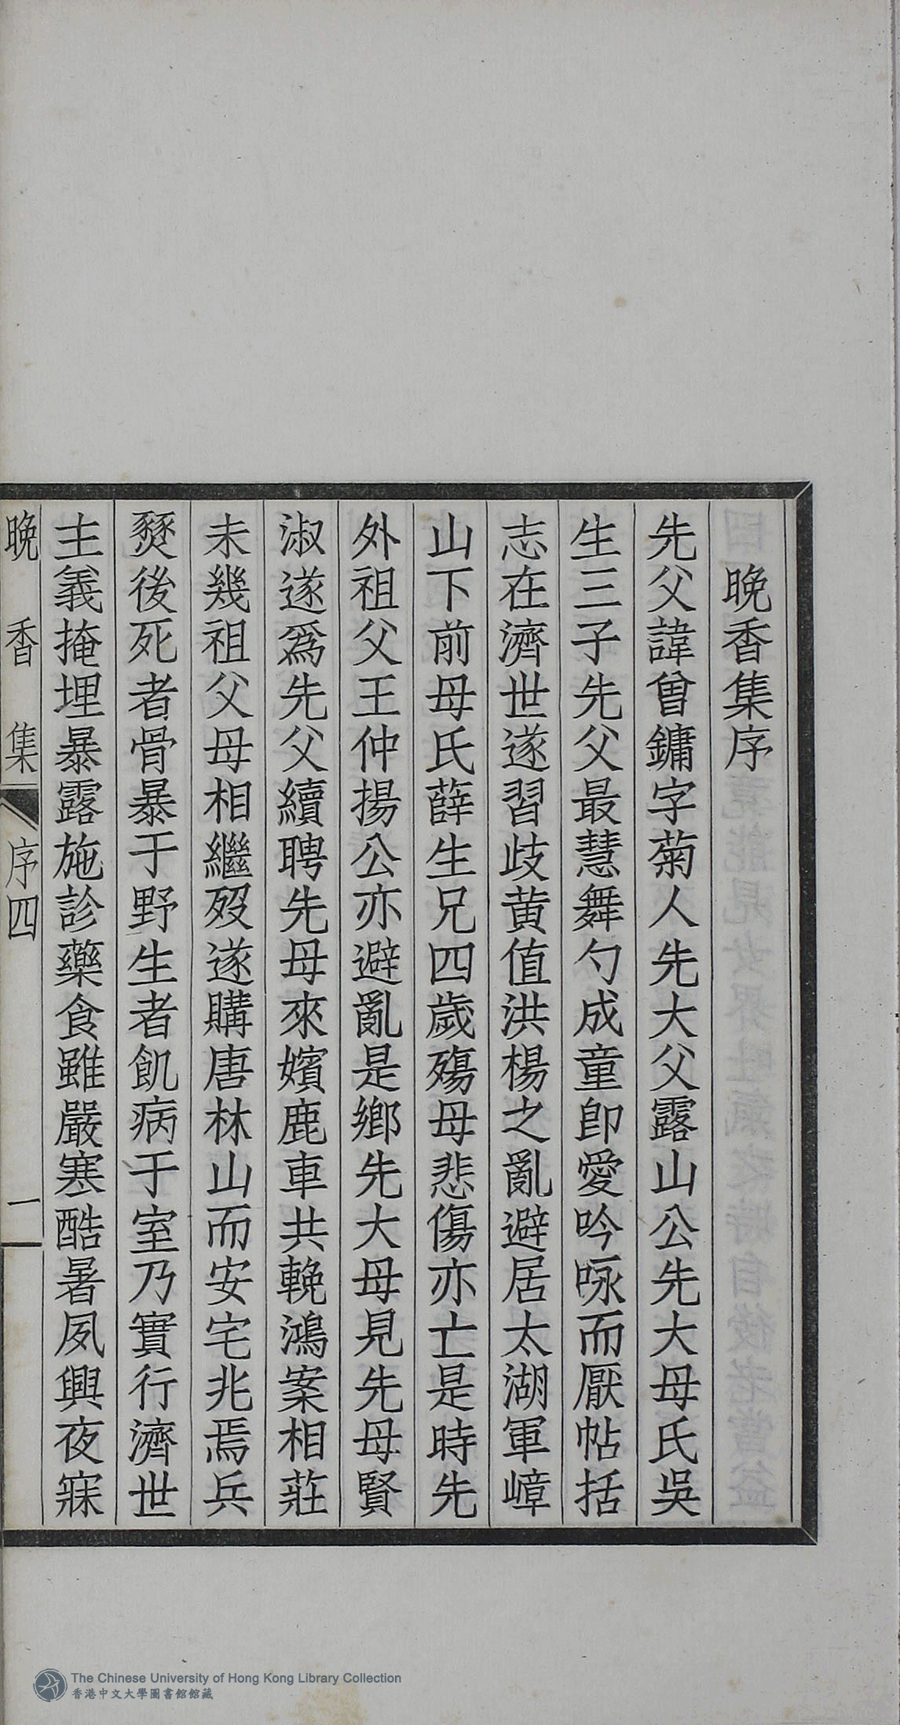 晚香集序
先父諱曾鏞字菊人先大父露山公先大母氏吳
生三子先父最慧舞勺成童卽愛吟咏而厭帖括
志在濟世遂習歧黄值洪楊之亂避居太湖軍嶂
山下前母氏薛生兄四歲殤母悲傷亦亡是時先
外祖父王仲揚公亦避亂是鄉先大母見先母賢
淑遂爲先父續聘先母來嬪鹿車共輓鴻案相莊
未幾祖父母相繼歿遂購唐林山而安宅兆焉兵
燹後死者骨暴于野生者飢病于室乃實行濟世
主義掩埋暴露施診藥食雖嚴寒酷暑夙興夜寐
晚香集 序四 一
The Chinese University of Hong Kong Library Collection
香港中文大學圖書館館藏